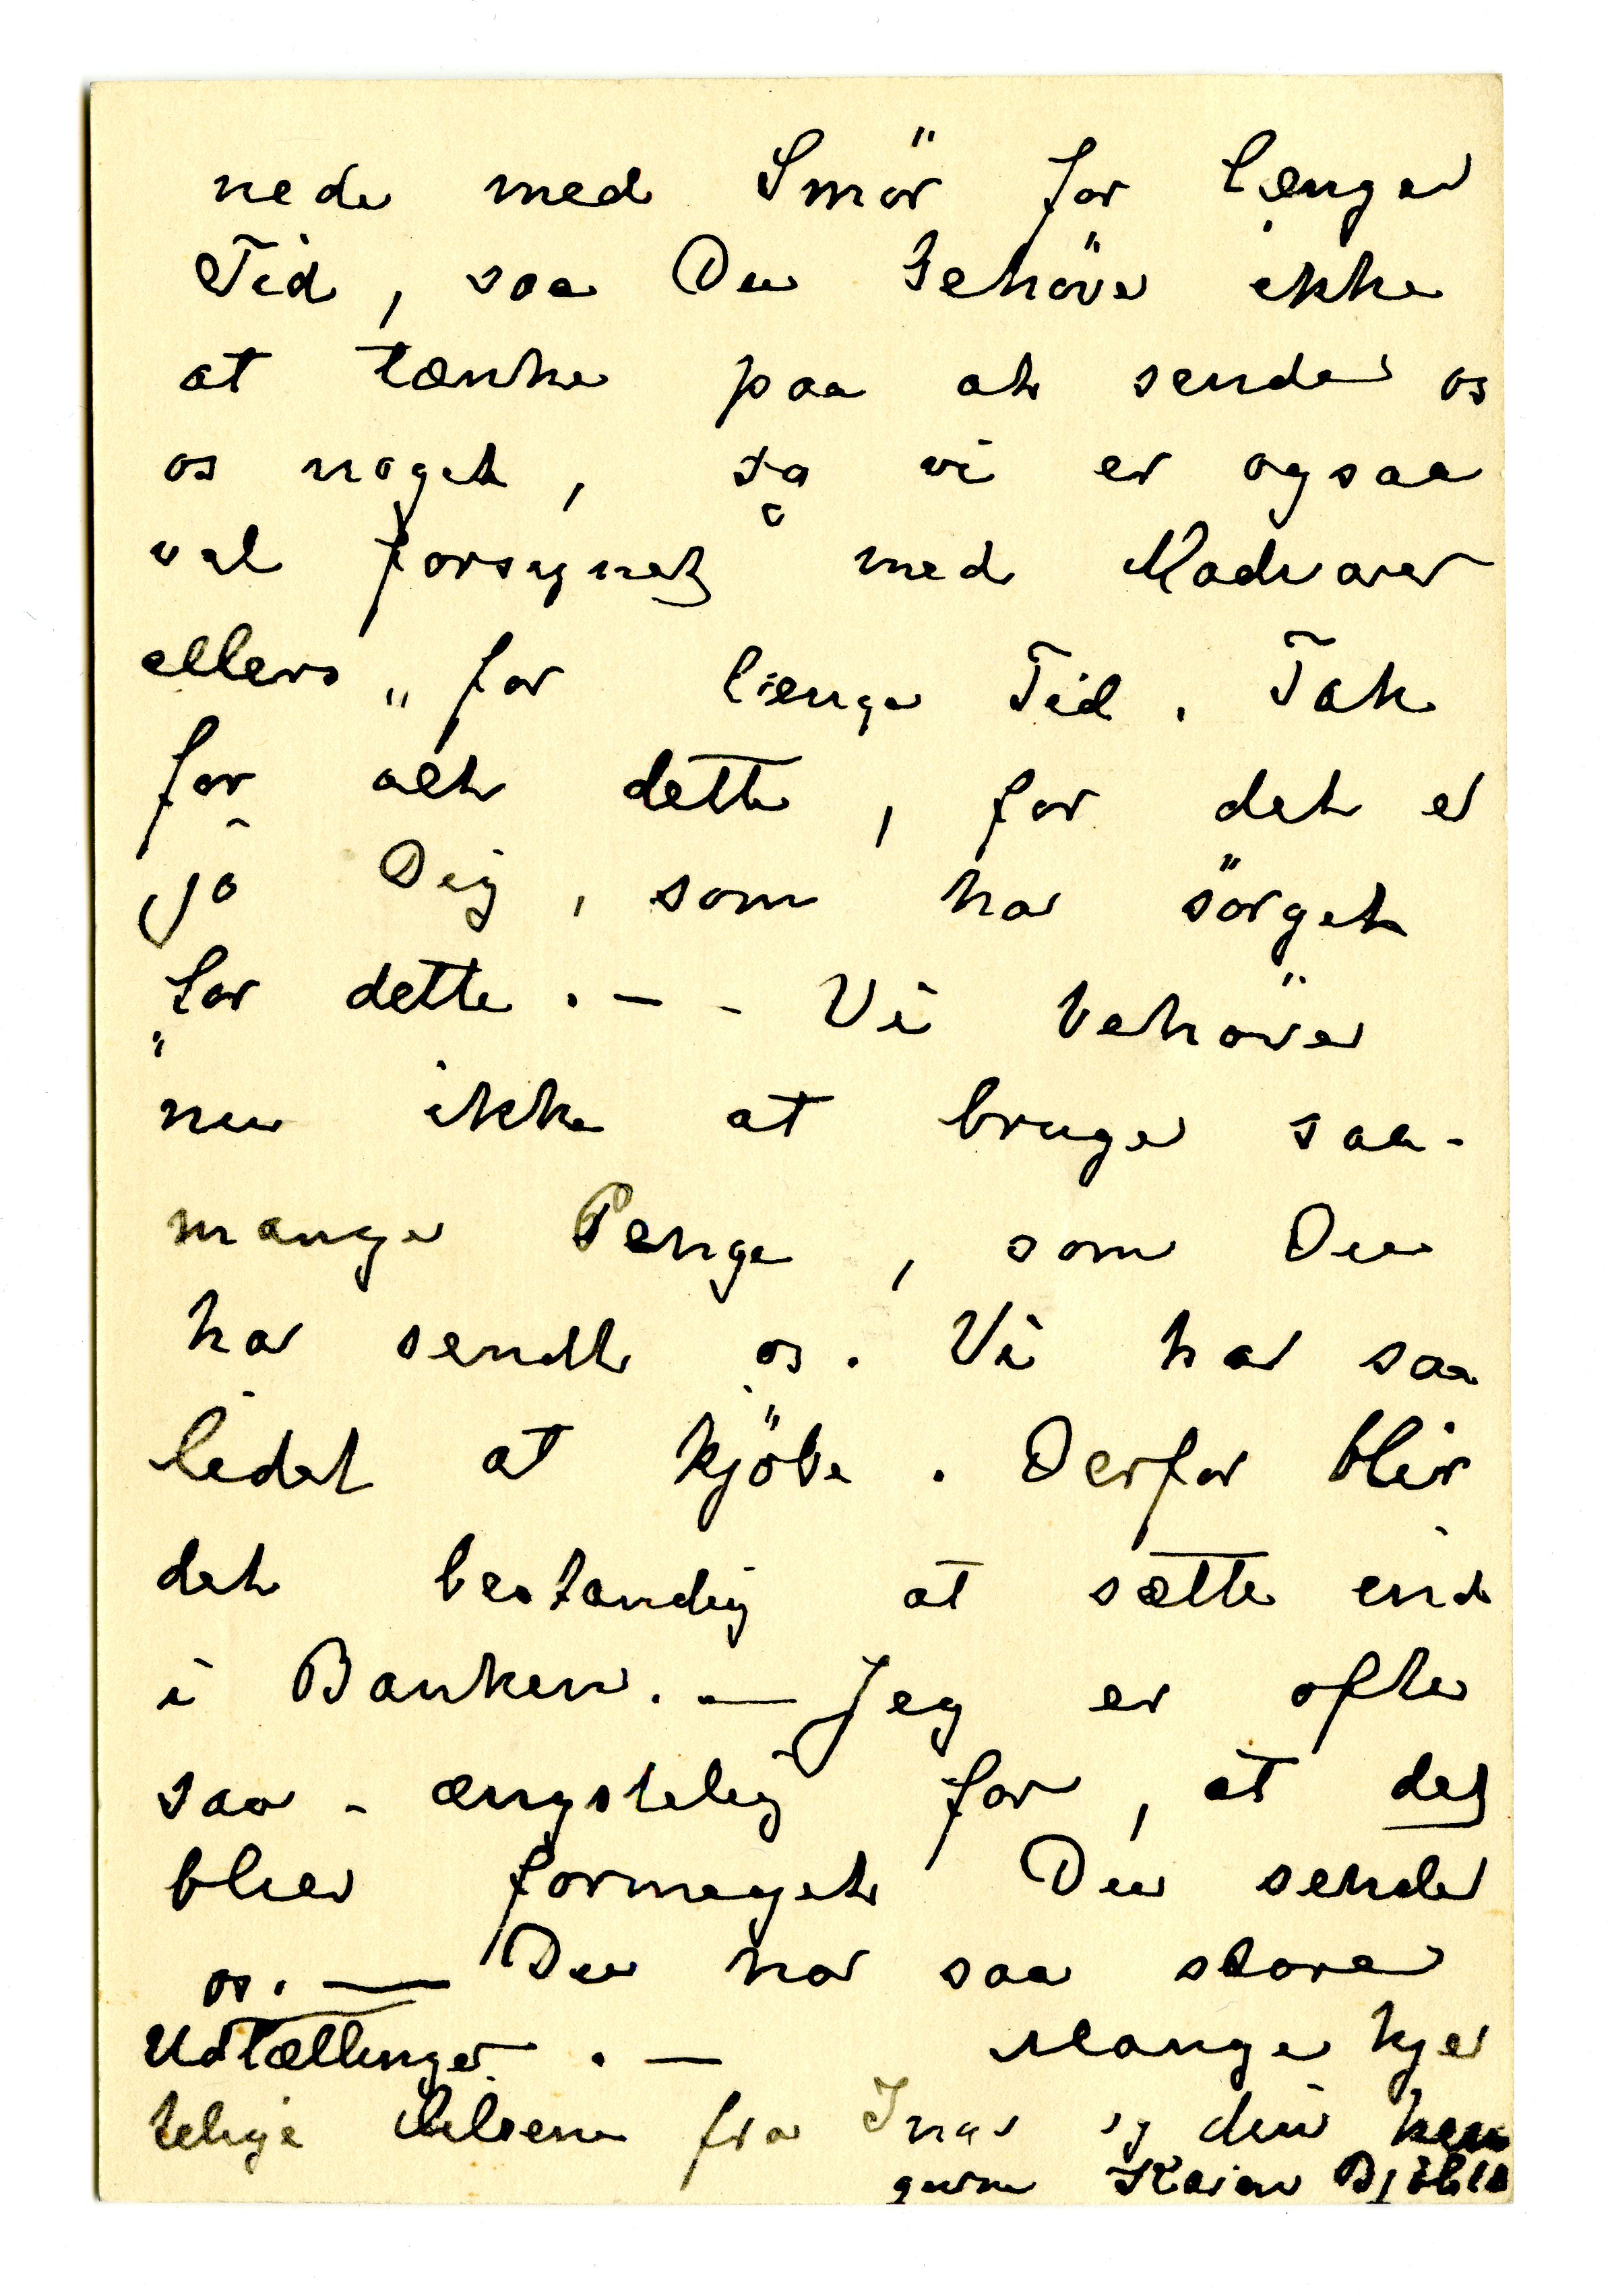 nede med Smör for længer
Tid, saa Du behöver ikke
at tænke paa at sende os
os noget, ja vi er ogsaa
vel forsynet med Madvarer
ellers „ for længe Tid. Tak
for alt dette, for det er
jo Dig, som har sörget
for dette. - - Vi behöver
nu ikke at bruge saa-
mange Penge, som Du
har sendt os. Vi har saa
lidet at kjöbe. Derfor blir
det bestandig at sætte ind
i Banken. — Jeg er ofte
saa - ængstelig for, at det
blier formeget Du sender
os. — Du har saa store
Udtællinger. — Mange kjer
telige Hilsener fra Inger og din hen
givne Karen Bjölsta